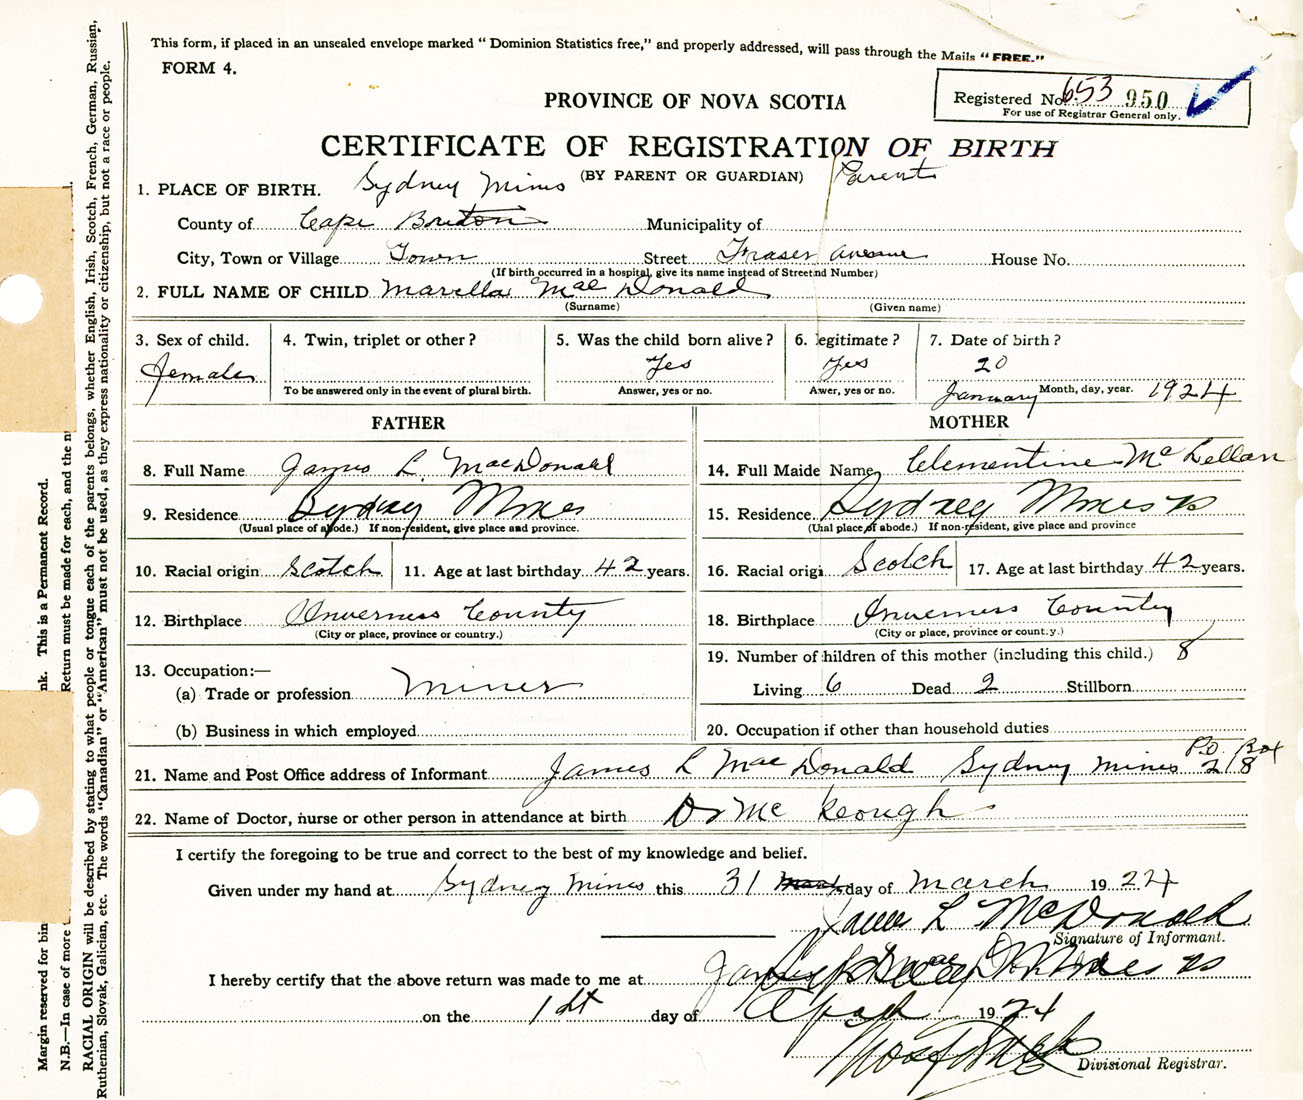 This form, if placed in an unsealed envelope marked “ Dominion Statistics free,” and properly addressed, will pass through the Mails “ FREE.”
FORM 4.
Registered No. 653 950
For use of Registrar General only.
PROVINCE OF NOVA SCOTIA
CERTIFICATE OF REGISTRATION OF BIRTH
(BY PARENT OR GUARDIAN) Parent
1. PLACE OF BIRTH. Sydney Mines
County of Cape Breton Municipality of
City, Town or Village Town Street Fraser Avenue House No.
(If birth occurred in a hospital, give its name instead of Streetnd Number)
2. FULL NAME OF CHILD Marella Mac Donald
(Surname) (Given name)
3. Sex of child. 4. Twin, triplet or other ? 5. Was the child born alive ? 6. legitimate ? 7. Date of birth ?
Female Yes Yes 20
To be answered only in the event of plural birth. Answer, yes or no. Awer, yes or no. January Month, day, year. 1924
FATHER MOTHER
8. Full Name James L. MacDonald 14. Full Maide Name Clementine McLellan
9. Residence Sydney Mines 15. Residence Sydney Mines
(Usual place of abode.) If non-resident, give place and province. (Ual place of abode.) If non-resident, give place and province
10. Racial origin Scotch 11. Age at last birthday 42 years. 16. Racial origi Scotch 17. Age at last birthday 42 years.
12. Birthplace Inverness County 18. Birthplace Inverness County
(City or place, province or country.) (City or place, province or county.)
13. Occupation:— 19. Number of hildren of this mother (including this child.) 8
(a) Trade or profession Miner Living 6 Dead 2 Stillborn
(b) Business in which employed 20. Occupation if other than household duties
21. Name and Post Office address of Informant James L MacDonald Sydney Mines P.O. Box 218
22. Name of Doctor, nurse or other person in attendance at birth Dr Mc Keough
I certify the foregoing to be true and correct to the best of my knowledge and belief.
Given under my hand at Sydney Mines this 31 day of March 1924
James L McDonald
Signature of Informant.
I hereby certify that the above return was made to me at
on the 1st day of April 1924
Divisional Registrar.
Margin reserved for bin nk. This is a Permanent Record.
N.B.—In case of more Return must be made for each, and the n
RACIAL ORIGIN will be described by stating to what people or tongue each of the parents belongs, whether English, Irish, Scotch, French, German, Russian,
Ruthenian, Slovak, Galician, etc. The words “Canadian” or “American” must not be used, as they express nationality or citizenship, but not a race or people.